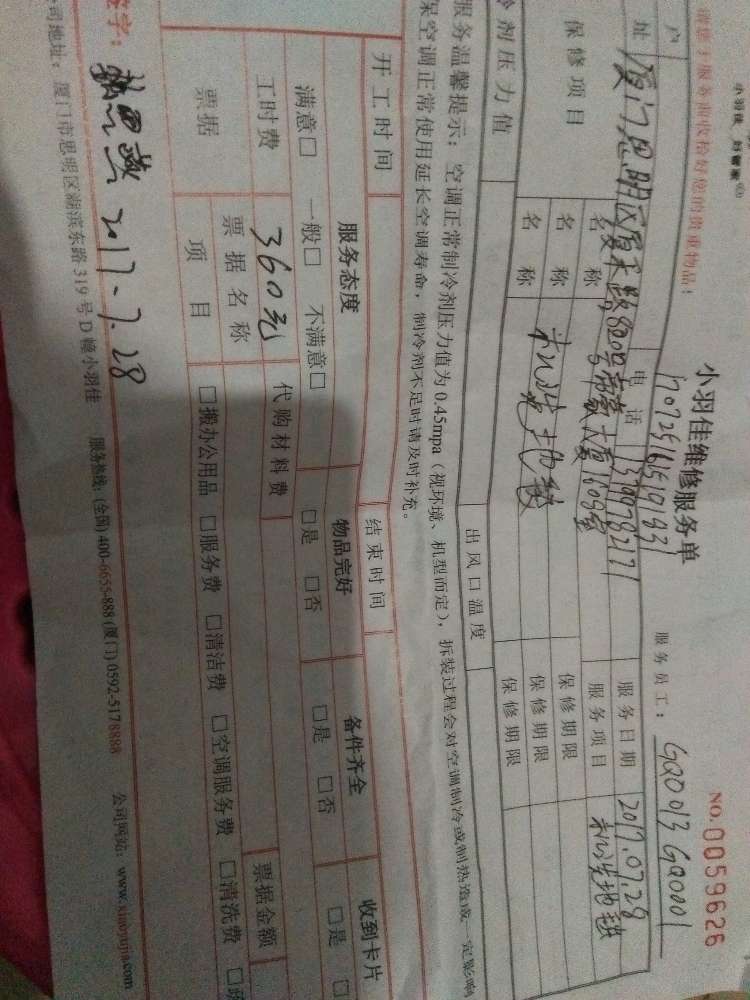 小羽佳 好管家
NO.0059626
小羽佳维修服务单
服务员工: GQ0013 GQ0001
请您于服务前收检好您的贵重物品!
170725161519193
户 电话 服务日期 2017.07.28
址 厦门思明区厦禾路820号帝豪大厦1609室 服务项目 机洗地毯
保修项目 名称 保修期限
名称 机洗地毯 保修期限
名称 保修期限
冷剂压力值 出风口温度
服务温馨提示: 空调正常制冷剂压力值为 0.45mpa (视环境、机型而定), 拆装过程会对空调制冷或制热造成一定影响
保空调正常使用延长空调寿命, 制冷剂不足时请及时补充。
开工时间 结束时间
服务态度 物品完好 备件齐全 收到卡片
满意□ 一般□ 不满意□ □是 □否 □是 □否 □是 □
工时费 360元 代购材料费 票据金额
票据 票据名称
项目 □搬办公用品 □服务费 □清洁费 □空调服务费 □清洗费
签字: 2017.7.28
司地址: 厦门市思明区湖滨东路 319号D幢小羽佳 服务热线: (全国) 400-6655-888 (厦门) 0592-5178888 公司网站: www.xiaoyujia.com